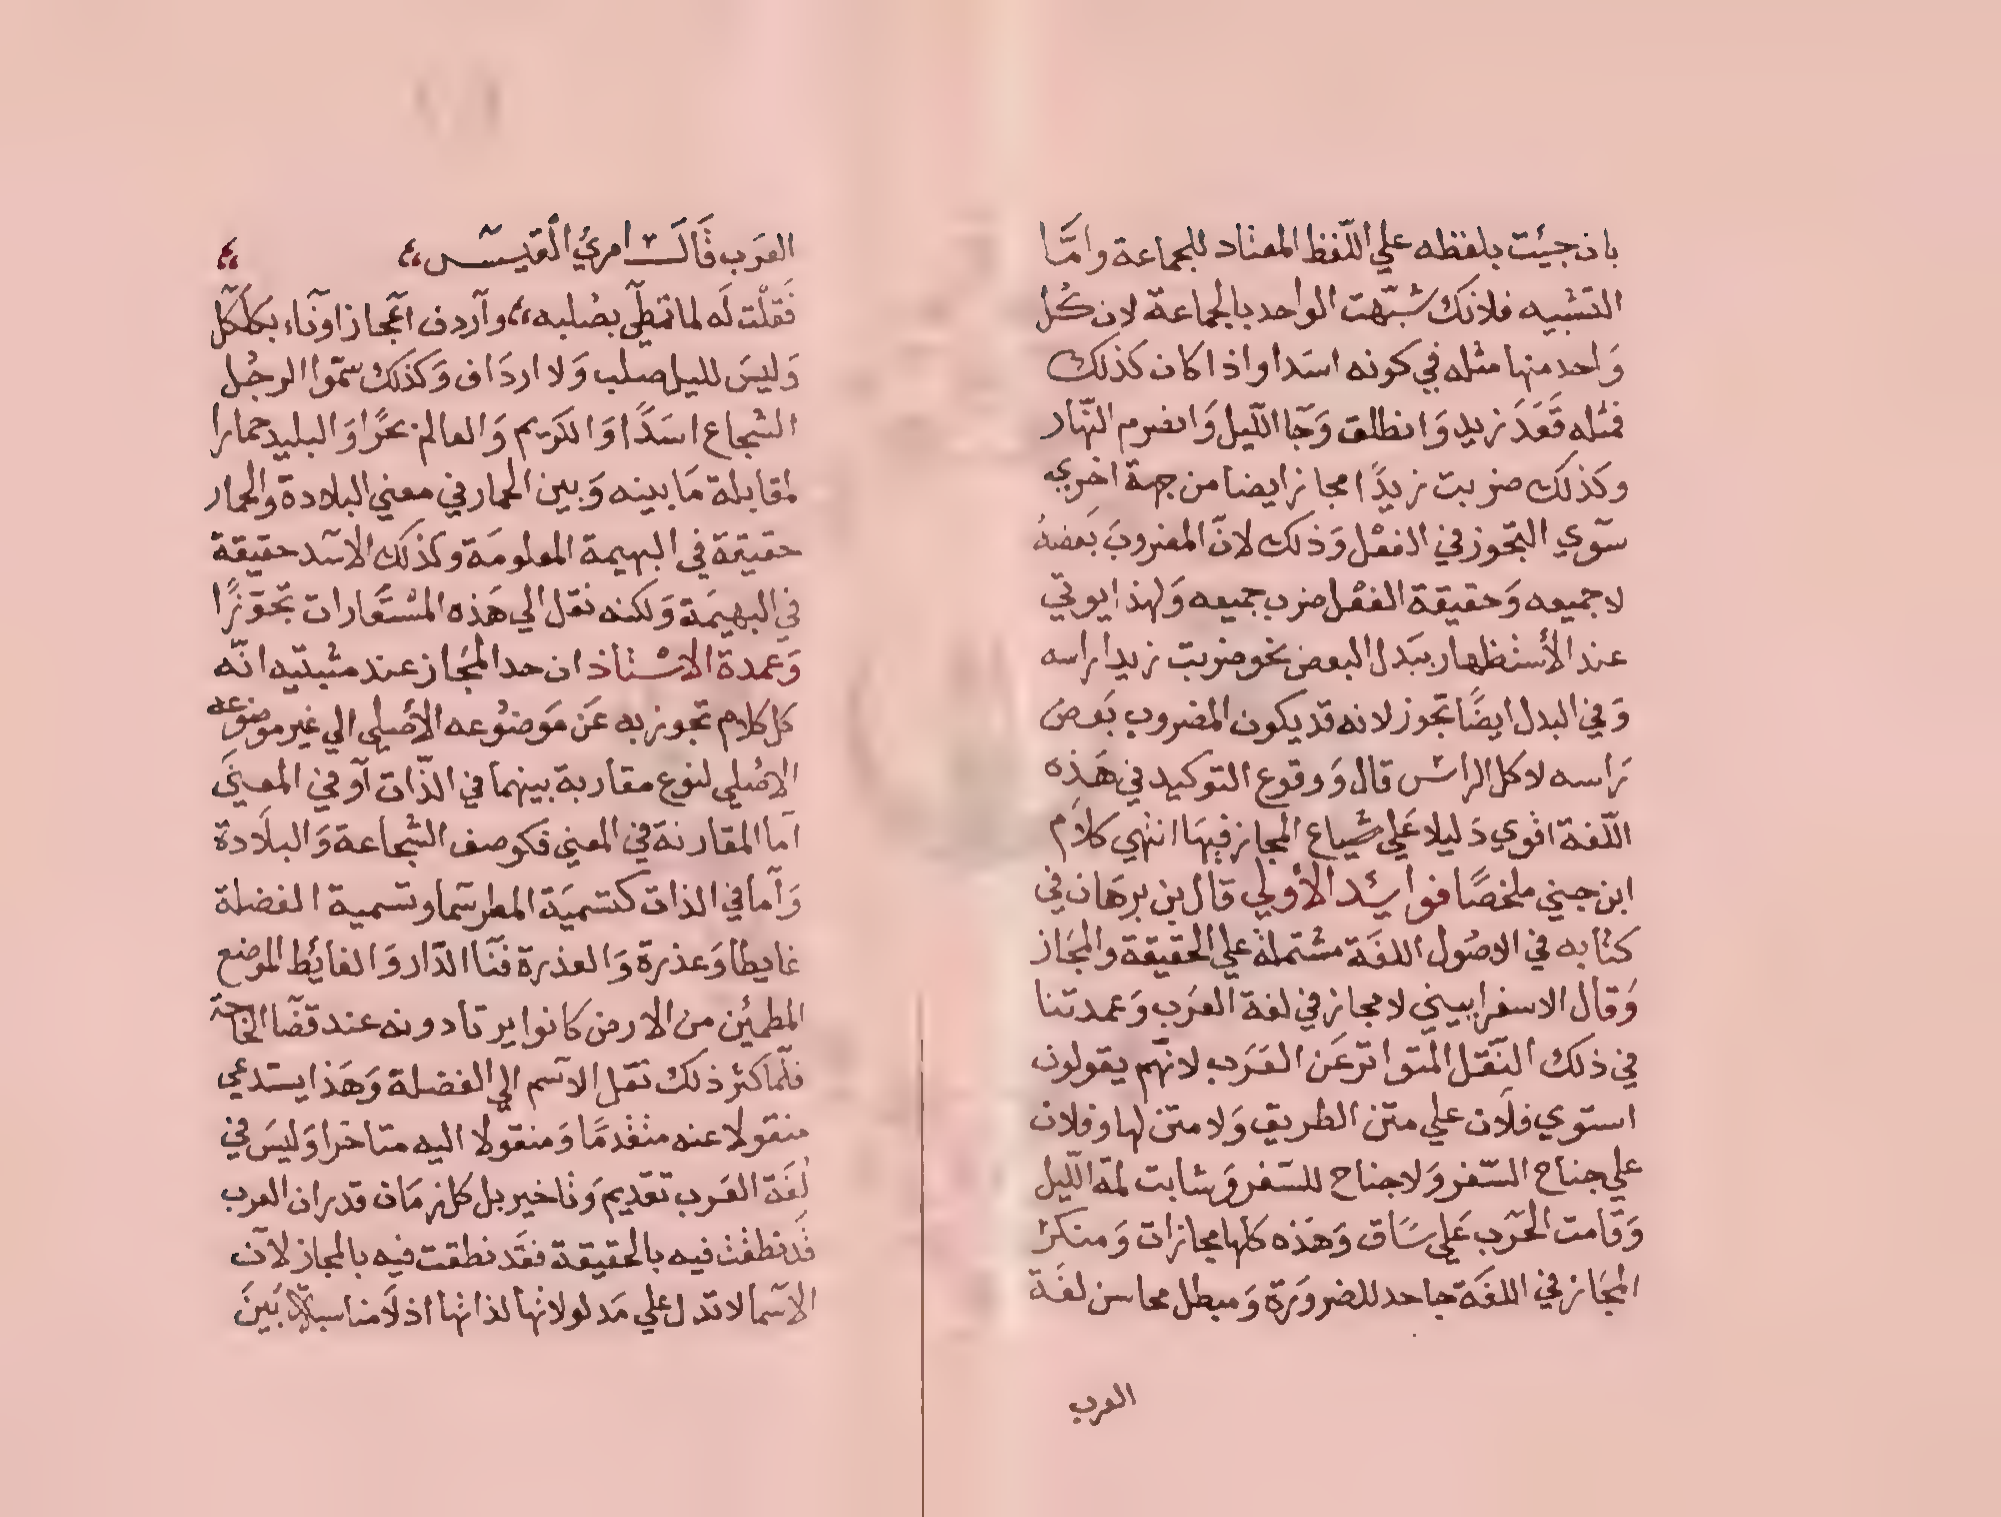 بان جيئت بلفظه علي اللّفظ المعتاد للجماعة وامَّا
التشبيه فلانك شبّهت الواحد بالجماعة لان كُل
وَاحد منها مثله في كونه اسَدا واذا كان كذلك
فمثله قَعَدَ زيد وَانطلق وَجَآ الّليل وَانصرم النّهار
وكذلك ضربت زيدًا مجازا يضا من جهة اخري
سوي التجوز في الفعْل وَذلك لانّ المضروبَ بَعضهُ
لا جميعه وَحقيقة الفعْل ضرب جميعه وَلهذا يوتي
عند الأستظهار ببَدل البعض نحو ضربت زيدا راسه
وَفي البدل ايضًا تجوز لانه قد يكون المضروب بَعض
رَاسه لا كل الراس قال وَوقوع التوكيد في هَذه
اللّغة اقوي دَليلا عَلي شياع المجاز فيهَا انتهي كلاَم
ابن جني ملخصًا فوايد الأولي قال بن برهَان في
كتابه في الاصُول اللغَة مشتملة علي الحقيقة والمجَاز
وَقال الاسفراييني لا مجاز في لغة العَرَب وَعمدتنا
في ذلك النَّقل المتواتر عَن العَرَب لانهّم يقولون
استوي فلاَن علي متن الطريق وَلا متن لها وفلان
علي جناح السّفر وَلا جناح للسفر وَشابت لمة اللّيل
وَقامت الحَرب عَلي سَاق وَهَذه كلها مجازات وَمنكر
المجَاز في اللغَة جاحد للضروَرة وَمبطل محاسن لغَة
العرب
العَرَب قَالَ امريُ القيس
فَقلْت لَه لما تمطّي بصُلبه وآردف آعجازا وَنآء بكَلْكل
وَليسَ لليل صلب وَلا اردَاف وَكَذلك سمّوا الرجُل
الشجاع اسَدًا وَالكرَيم وَالعالم بحرًا وَالبليد حمارا
لمقابلة مَا بينه وَبين الحمار في معني البلادة والحمار
حقيقة في البهيمة المعلومَة وكذلك الاسَد حقيقة
في البهيمَة وَلكنه نقل الي هَذه المسْتعَارات تجوّزًا
وَعمدة الاسْتاذ ان حد المجَاز عند مثبتيه انّه
كل كلام تجوز به عَن مَوضوُعه الأصلي الي غير موضوعه
الاصْلي لنوع مقاربة بينهما في الذّات آو في المعنيَ
آما المقارنة في المعني فكوصف الشجاعة وَالبلَادة
وَآما في الذات كتسميَة المطر سما وتسمية الفضلة
غايطا وَعذرة وَالعذرة فنَآ الدّار وَالغايُط الموضع
المطمئن من الارض كانوا يرتادونه عند قضَآ الحاجة
فلّما كثر ذلك نقل الاسم الي الفضلة وَهَذا يستدعي
منقولا عنه متقدمًا وَمنقولا اليه متاخرا وَليسَ في
لُغَة العَرب تقديم وَتاخير بل كل زمَان قدر ان العرب
قَد نطقت فيه بالحقيقة فقَد نطقت فيه بالمجاز لآن
الاسما لا تدل علي مَدلولاتها لذاتها اذ لَا مناسبة بَينَ